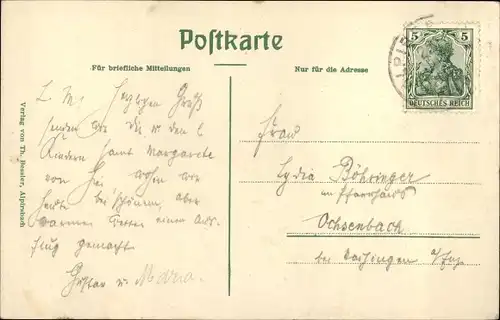 Postkarte
Für briefliche Mitteilungen
Nur für die Adresse
5 5
DEUTSCHES REICH
Verlag von Th. Bessler, Alpirsbach
L. M. Herzlichen Gruß
senden dir, die wir den l.
Kindern samt Margarete
von hier wohin wir
heute bei schönem, aber
warmen Wetter einen Aus-
flug gemacht.
Gustav u. Maria.
Frau
Lydia Böhringer
Pfarrhaus
Ochsenbach
bei Vaihingen a/Enz.